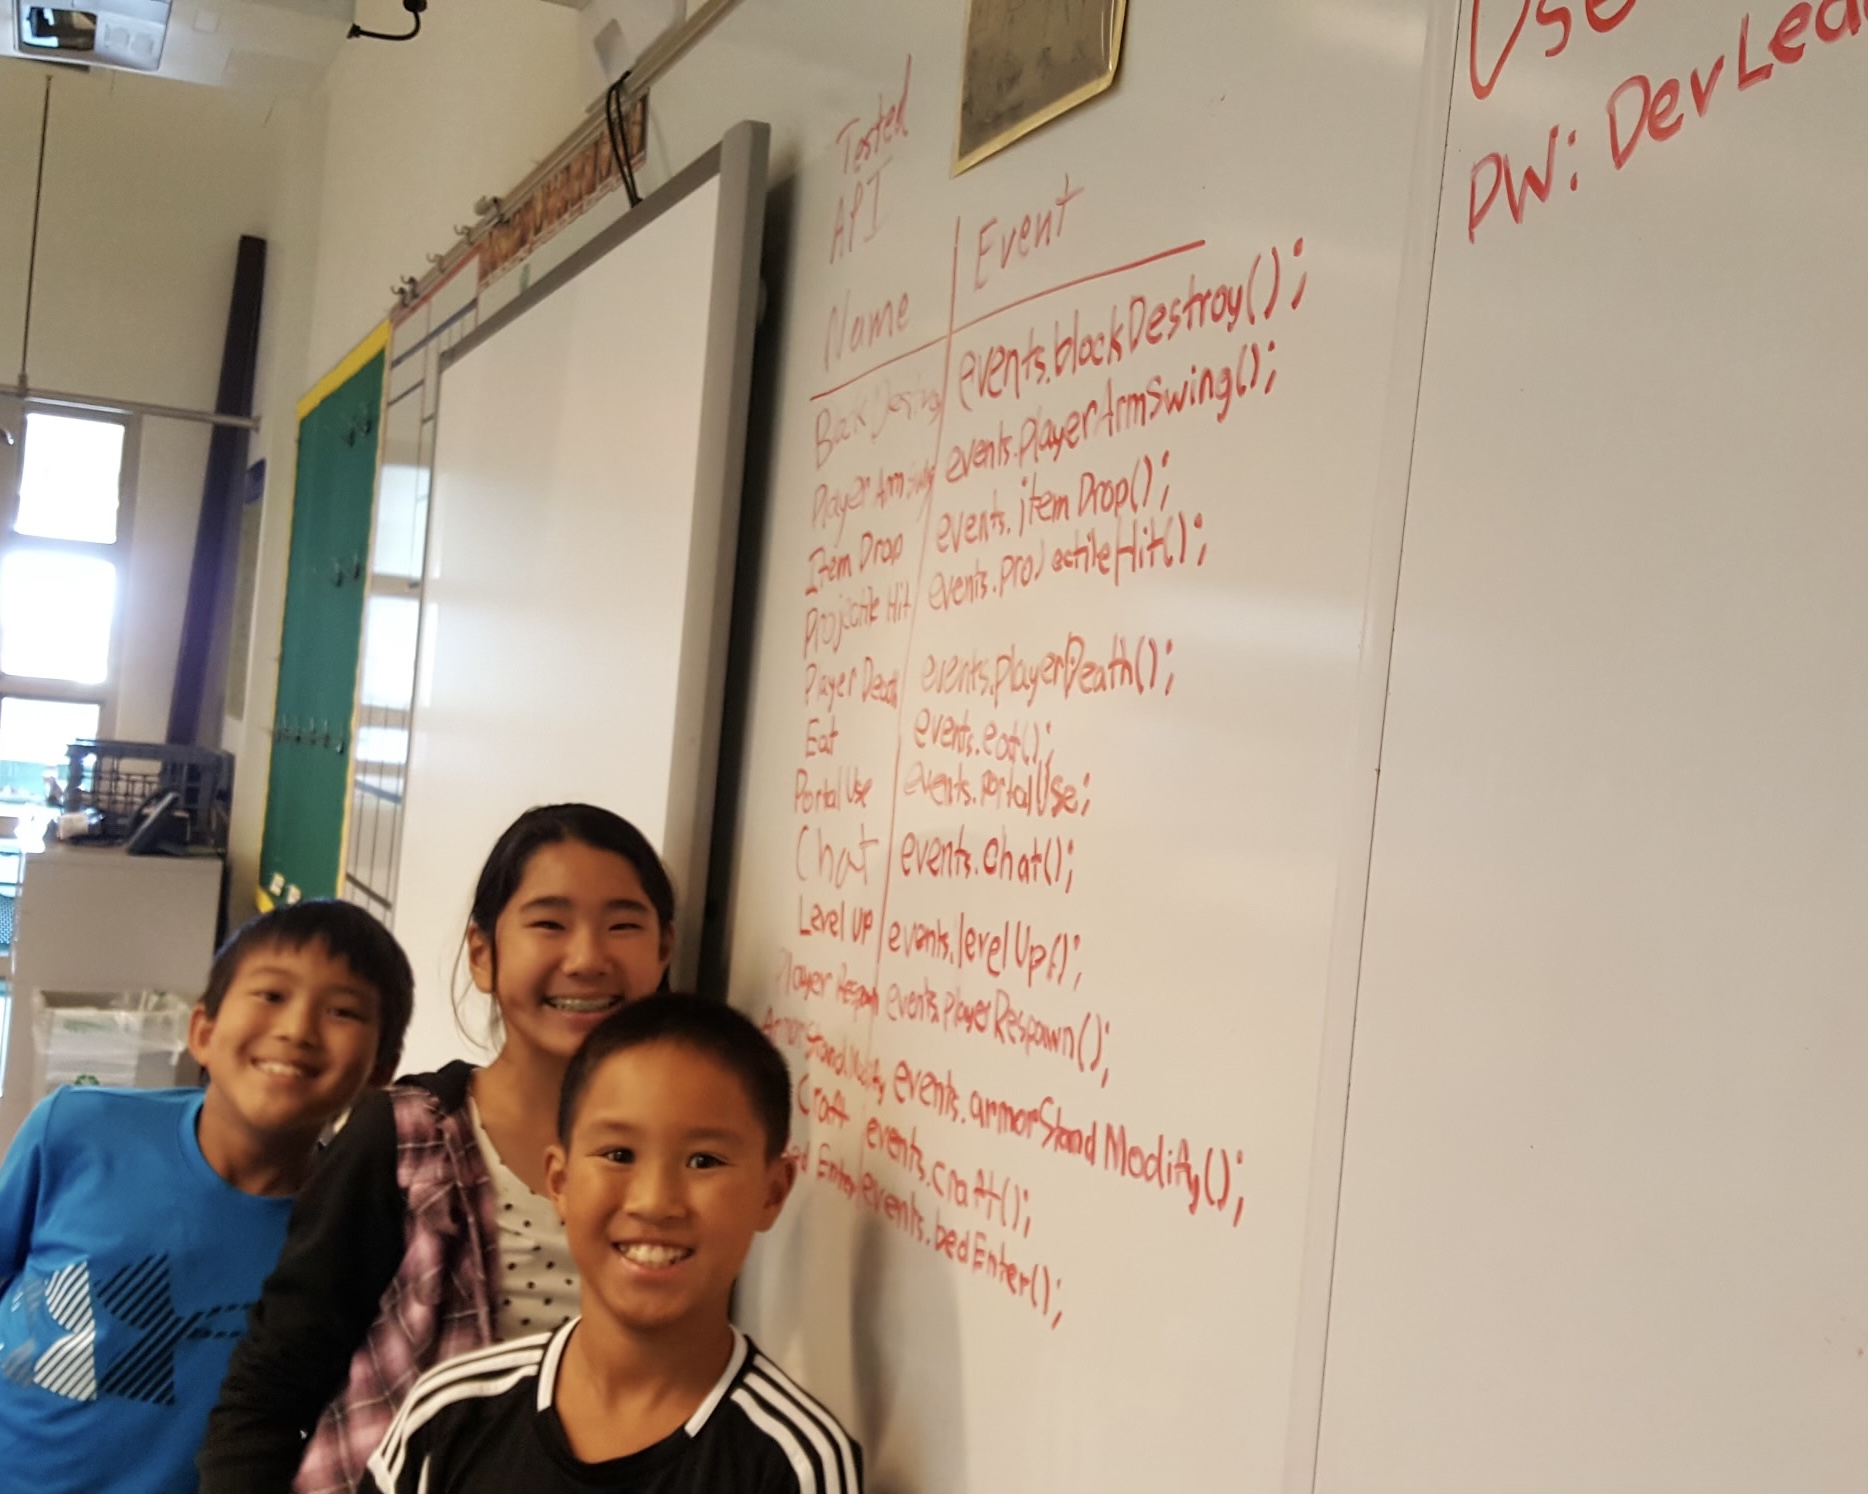 Tested
API
Name Event
Bock Destroy events.blockDestroy();
Player Arm Swing events.playerArmSwing();
Item Drop events.itemDrop();
Projectile Hit events.projectileHit();
Player Death events.playerDeath();
Eat events.eat();
Portal Use events.portalUse;
Chat events.chat();
Level Up events.levelUp();
Player Respawn events.playerRespawn();
Armor Stand Modify events.armorStandModify();
Craft events.craft();
Enter events.bedEnter();
Use
PW: DevLea